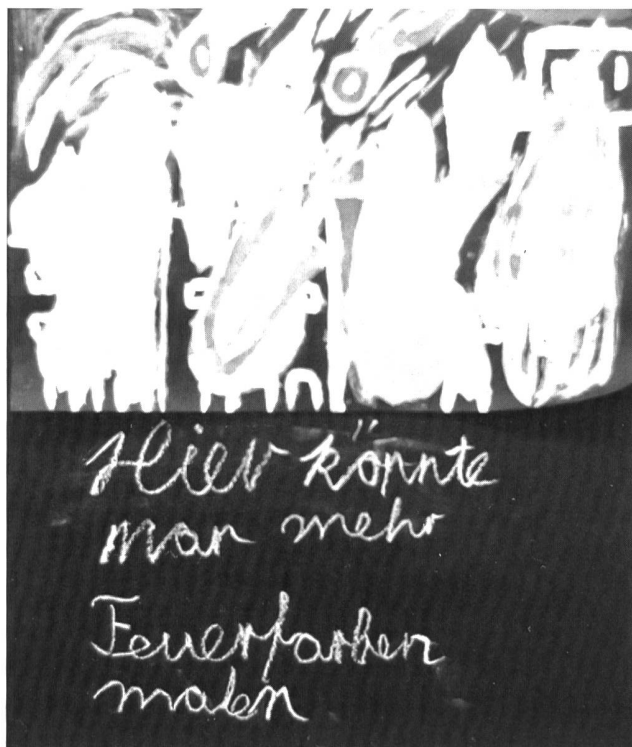 Hier könnte
man mehr
Feuerfarben
malen